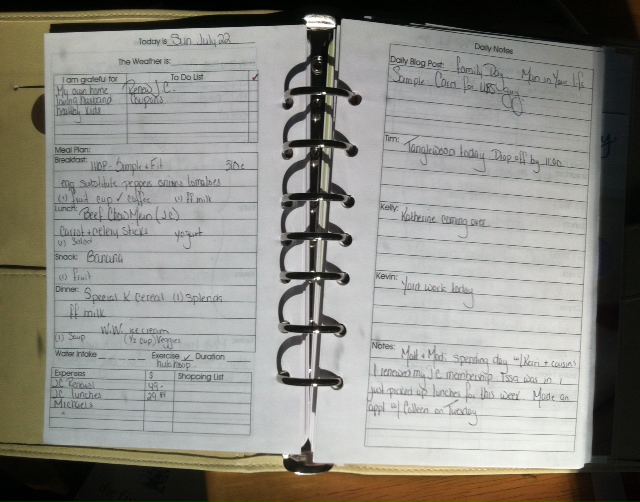 Today is Sun July 22
The Weather is:
I am grateful for To Do List
My own home Renew J.C.
loving husband Coupons
healthy kids
Meal Plan:
Breakfast: IHOP - Simple + Fit 310c
egg substitute peppers onions tomatoes
(1) fruit cup ✓ coffee (1) ff milk
Lunch: Beef Chow Mein (JC)
Carrot + celery sticks yogurt
(1) Salad
Snack: Banana
(1) fruit
Dinner: Special K Cereal (1) Splenda
ff milk
W.W. ice cream
(1) Soup (1/2 cup) Veggies
Water Intake Exercise ✓ Duration
hula hoop
Expenses $ Shopping List
JC Renewal 49-
JC lunches 29
Michaels
Daily Notes
Daily Blog Post: Family Day Men in Your life
Sample Cam for
Tim: Tanglewood today Drop off by 11:00
Kelly: Katherine coming over
Kevin: Yard work today
Notes: Matt + Madi spending day w/ Kerri + cousins
I renewed my JC membership Issa was in I
just picked up lunches for this week Made an
appt w/ Colleen on Tuesday